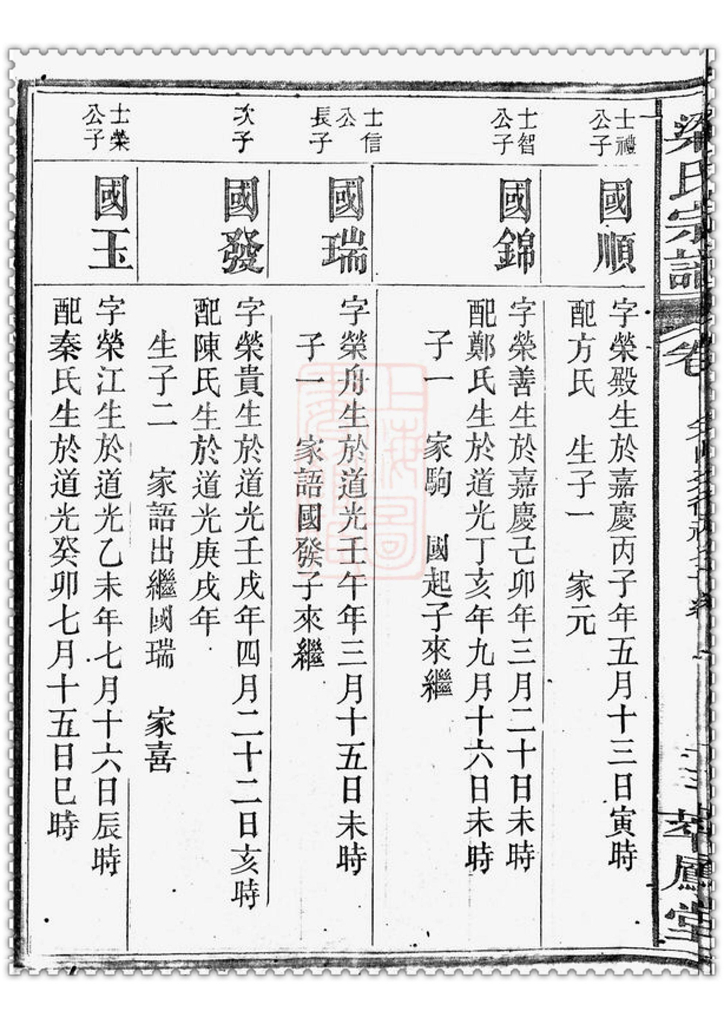 梁氏宗譜
卷
萃鳳堂
士禮
公子
國順
字榮殿生於嘉慶丙子年五月十三日寅時
配方氏　生子一　家元
士智
公子
國錦
字榮善生於嘉慶己卯年三月二十日未時
配鄭氏生於道光丁亥年九月十六日未時
子一　家駒　國起子來繼
士信
公
長子
國瑞
字榮舟生於道光壬午年三月十五日未時
子一　家語國發子來繼
次子
國發
字榮貴生於道光壬戌年四月二十二日亥時
配陳氏生於道光庚戌年
生子二　家語出繼國瑞　家喜
士榮
公子
國玉
字榮江生於道光乙未年七月十六日辰時
配秦氏生於道光癸卯七月十五日巳時